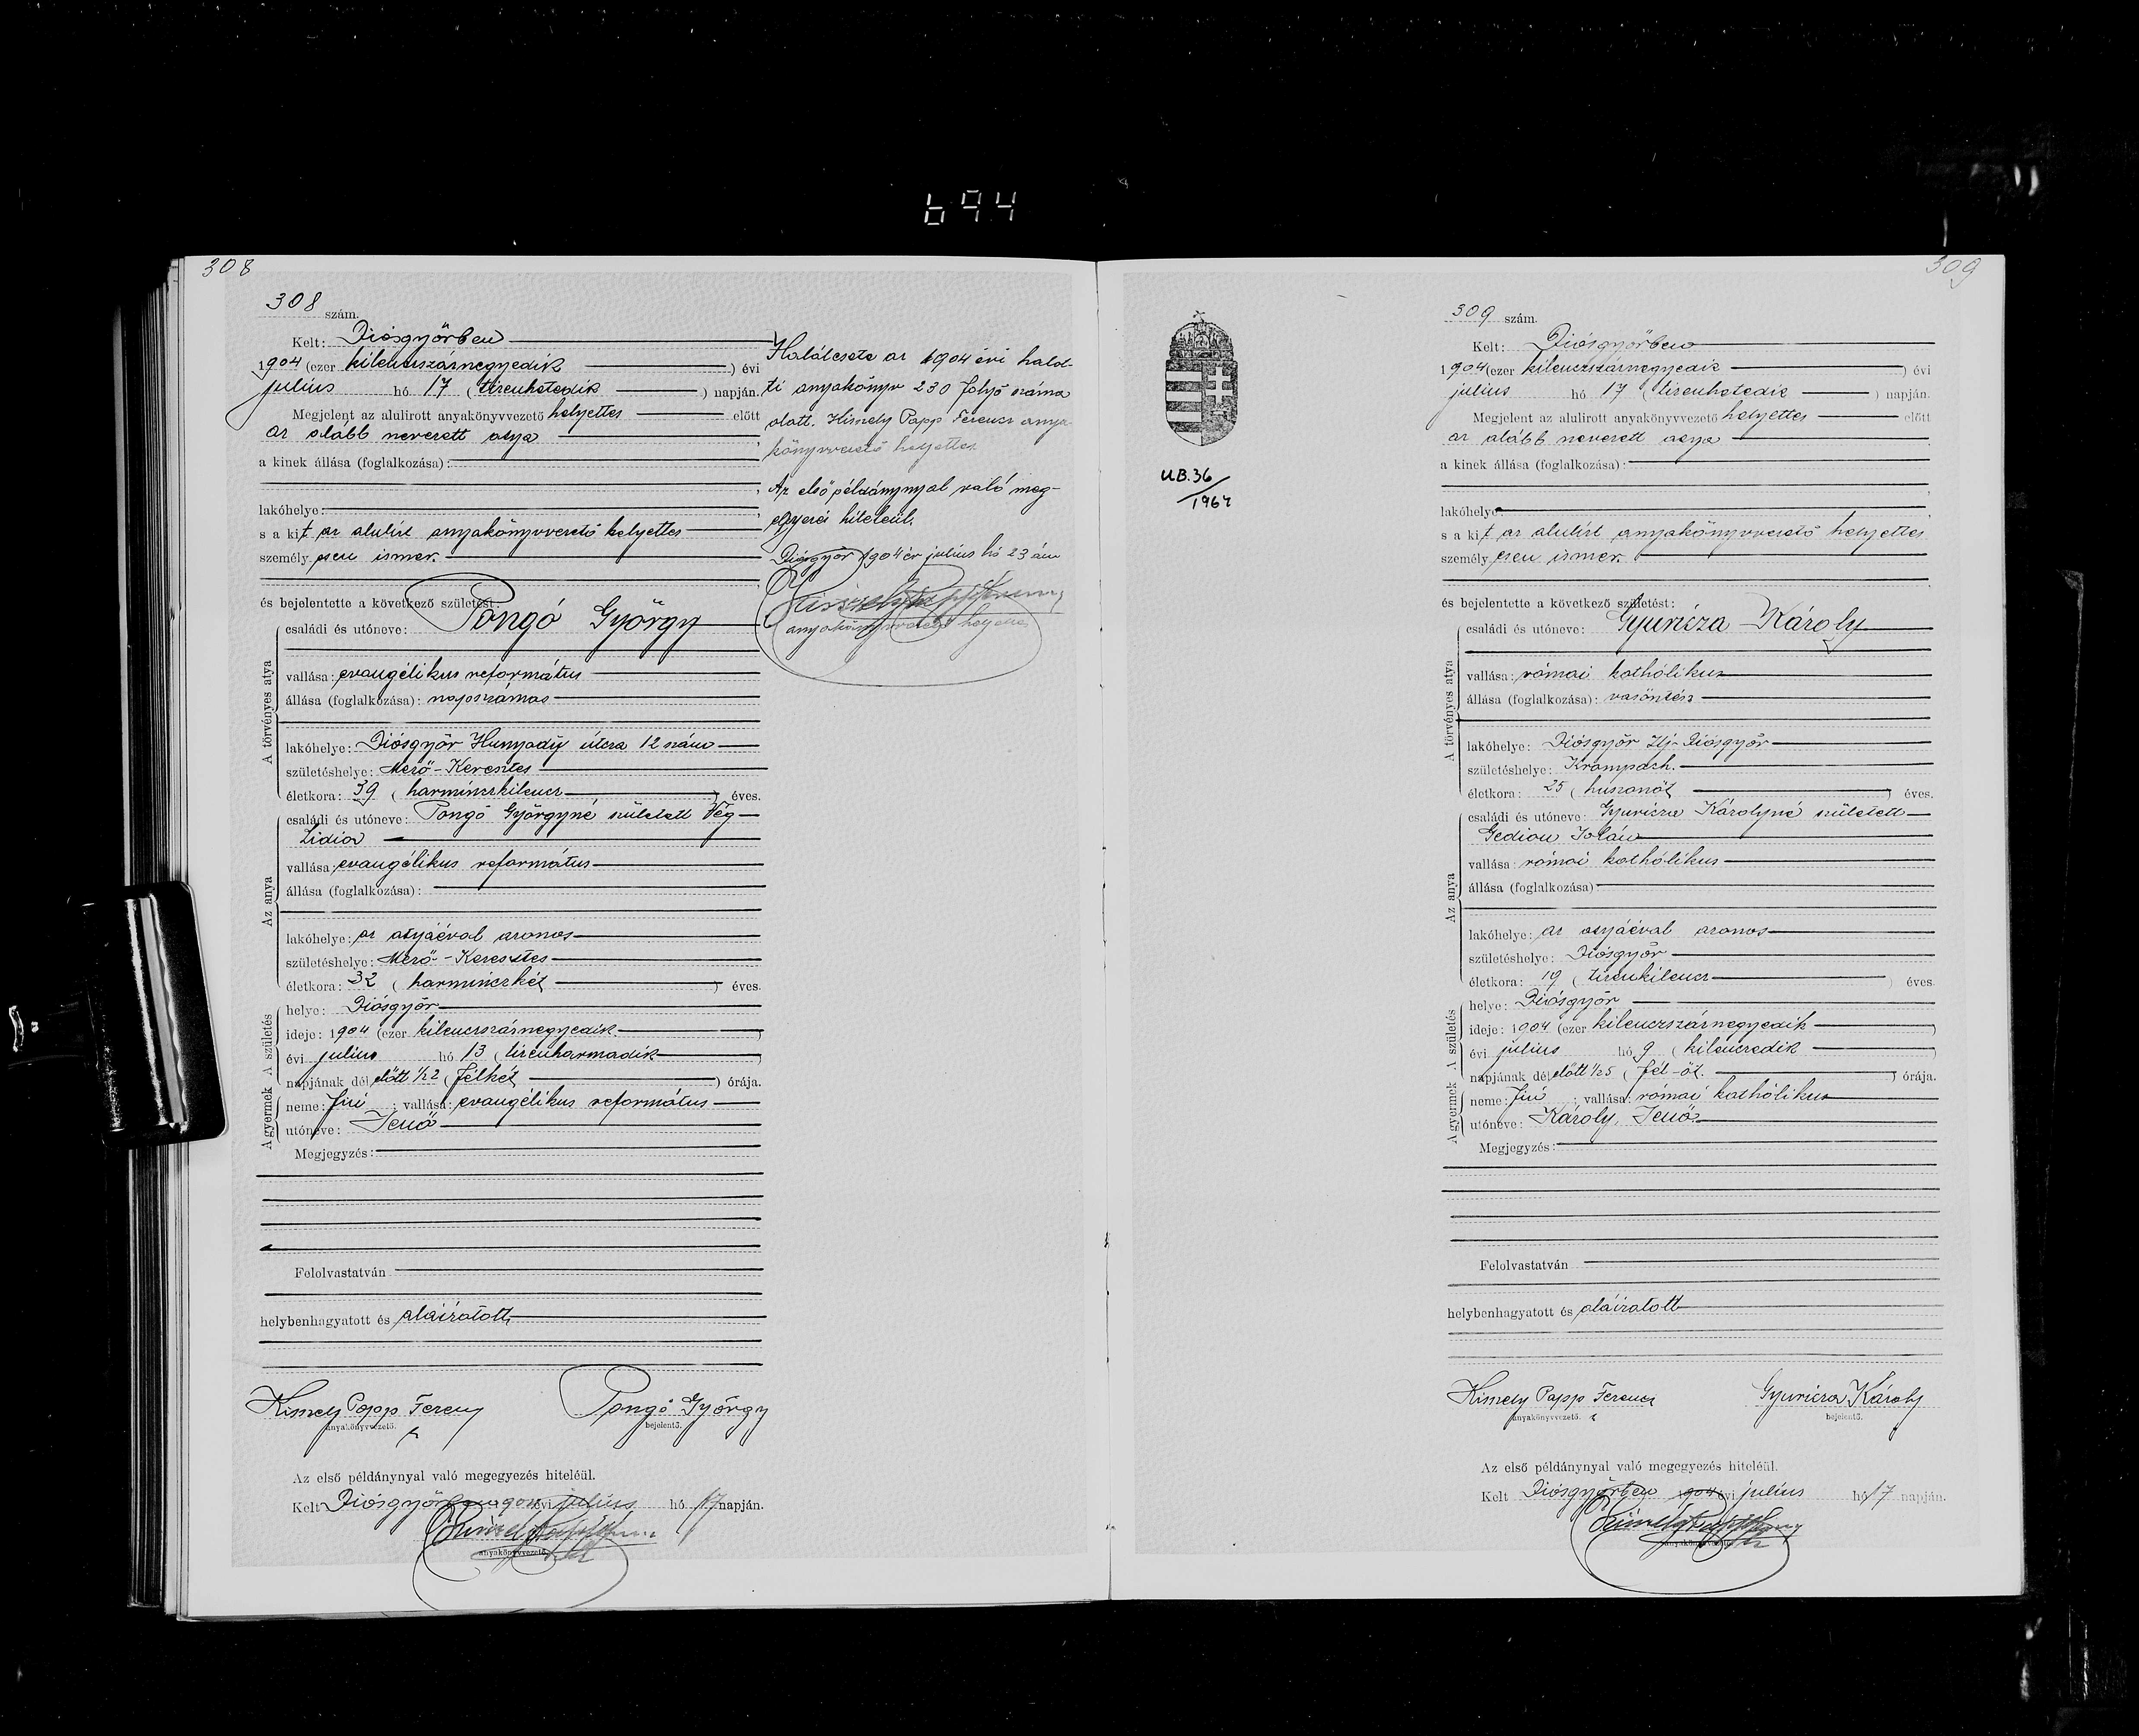 694
308
308 szám.
Kelt: Diósgyőrben
1904 (ezer kilenczszáznegyedik ) évi
julius hó 17 ( tizenhetedik ) napján.
Megjelent az alulirott anyakönyvvezető helyettes előtt
az alább nevezett atya
a kinek állása (foglalkozása):
lakóhelye:
s a kit az alulírt anyakönyvvezető helyettes
személyesen ismer.
és bejelentette a következő születést:
A törvényes atya
családi és utóneve: Pongó György
vallása: evangélikus református
állása (foglalkozása): napszámos
lakóhelye: Diósgyőr Hunyady útcza 12 szám
születéshelye: Mező-Keresztes
életkora: 39 ( harminczkilencz ) éves.
Az anya
családi és utóneve: Pongó Györgyné született Vég
Lidia
vallása: evangélikus református
állása (foglalkozása):
lakóhelye: az atyáéval azonos
születéshelye: Mező-Keresztes
életkora: 32 ( harminczkét ) éves.
A születés
helye: Diósgyőr
ideje: 1904 (ezer kilenczszáznegyedik )
évi julius hó 13 ( tizenharmadik )
napjának délelőtt 1/2 2 ( félkét ) órája.
A gyermek
neme: fiú ; vallása: evangélikus református
utóneve: Jenő
Megjegyzés:
Felolvastatván
helybenhagyatott és aláíratott
Kismely Papp Ferencz Pongó György
anyakönyvvezető. h bejelentő.
Az első példánynyal való megegyezés hiteléül.
Kelt Diósgyőrben 904 évi julius hó 17 napján.
anyakönyvvezető
Halálesete az 1904 évi halot-
ti anyakönyv 230 folyó száma
alatt. Kismely Papp Ferencz anya-
könyvvezető helyettes
Az első példánynyal való meg-
egyezés hiteleül.
Diósgyőr 1904 év julius hó 23 án
anyakönyvvezető helyettes
309
UB.36
/1964
309 szám.
Kelt: Diósgyőrben
1904 (ezer kilenczszáznegyedik ) évi
julius hó 17 ( tizenhetedik ) napján.
Megjelent az alulirott anyakönyvvezető helyettes előtt
az alább nevezett atya
a kinek állása (foglalkozása):
lakóhelye
s a kit az alulírt anyakönyvvezető helyettes
személyesen ismer.
és bejelentette a következő születést:
A törvényes atya
családi és utóneve: Gyuricza Károly
vallása: római kathólikus
állása (foglalkozása): vasöntés
lakóhelye: Diósgyőr Uj-Diósgyőr
születéshelye: Krompach.
életkora: 25 ( huszonöt ) éves.
Az anya
családi és utóneve: Gyuricza Károlyné született
Gedion Jolán
vallása: római kathólikus
állása (foglalkozása)
lakóhelye: az atyáéval azonos
születéshelye: Diósgyőr
életkora: 19 ( tizenkilencz ) éves.
A születés
helye: Diósgyőr
ideje: 1904 (ezer kilenczszáznegyedik )
évi julius hó 9 ( kilenczedik )
napjának délelőtt 1/2 5 ( fél-öt. ) órája.
A gyermek
neme: fiú ; vallása: római kathólikus
utóneve: Károly, Jenő.
Megjegyzés:
Felolvastatván
helybenhagyatott és aláíratott
Kismely Papp Ferencz Gyuricza Károly
anyakönyvvezető. h bejelentő.
Az első példánynyal való megegyezés hiteléül.
Kelt Diósgyőrben 904 évi julius hó 17 napján.
anyakönyvvezető